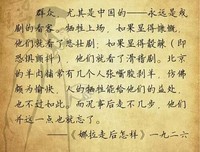 群众，尤其是中国的——永远是戏
剧的看客。牺牲上场，如果显得慷慨，
他们就看了悲壮剧；如果显得觳觫（即
恐惧颤抖），他们就看了滑稽剧。北京
的羊肉铺常有几个人张嘴剥羊，仿佛
颇为愉快，人的牺牲能给他们的益处，
也不过如此。而况事后走不几步，他们
并这一点也就忘了。
——《娜拉走后怎样》一九二六